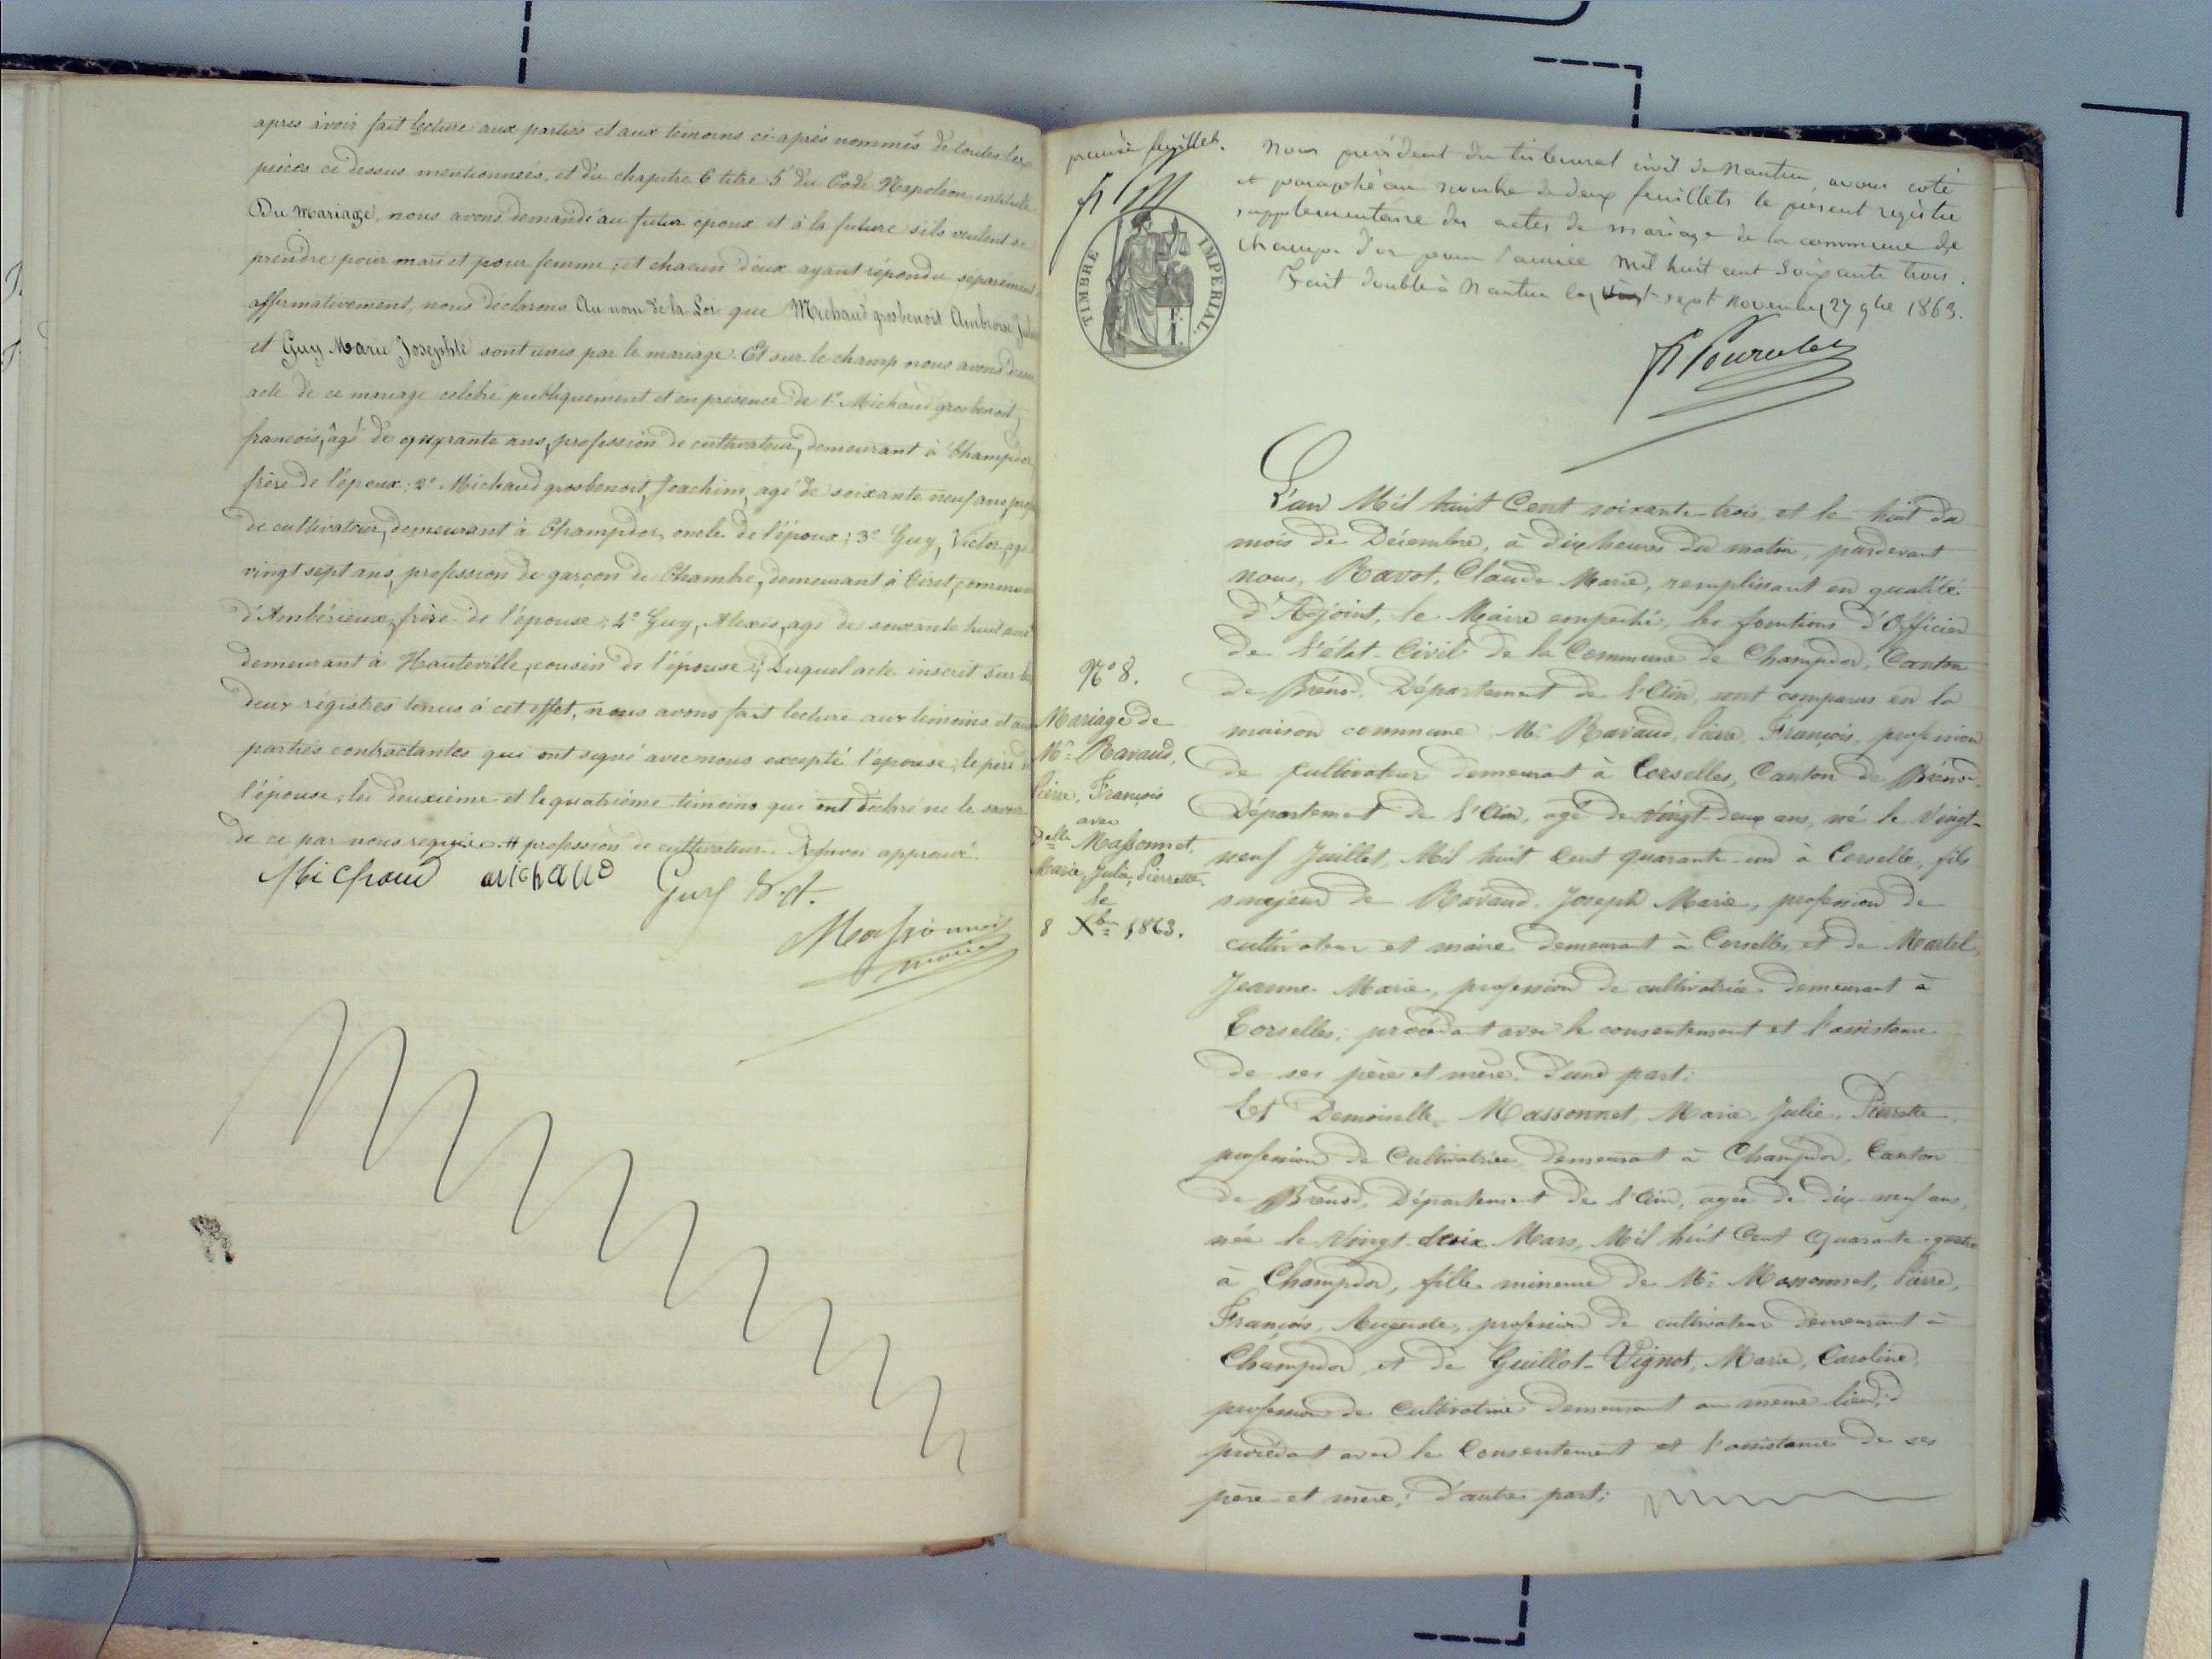 apres avoir fait lecture aux parties et aux témoins ci-après nommés de toutes les
pièces ci dessus mentionnées, et du chapitre 6 titre 5 du Code Napoléon, intitulé
Du Mariage, nous avons demandé au futur époux et à la future s'ils veulent se
prendre pour mari et pour femme; et chacun d'eux ayant répondu séparément
affirmativement, nous déclarons Au nom de la Loi que Michaud grosbenoit Ambroise
et Guy Marie Josephte sont unis par le mariage. Et sur le champ nous avons
acte de ce mariage célébré publiquement et en présence de 1° Michaud grosbenoit,
francois, âgé de quarante ans, profession de cultivateur, demeurant à Champdor
frère de l'époux; 2° Michaud grosbenoit, Joachim, agé de soixante neuf ans,
de cultivateur, demeurant à Champdor, oncle de l'époux; 3° Guy, Victor, agé
vingt sept ans, profession de garçon de Chambre, demeurant à Tiret, commune
d'Ambérieux, frère de l'épouse; 4° Guy, Alexis, agé de soixante huit ans
demeurant à Hauteville, cousin de l'épouse; Duquel acte inscrit sur les
deux régistres tenus à cet effet, nous avons fait lecture aux témoins et aux
parties contractantes qui ont signé avec nous excepté l'épouse, le père de
l'épouse, les deuxième et le quatrième témoins qui ont déclaré ne le savoir
de ce par nous requis. # profession de cultivateur. Renvoi approuvé.
Michaud michaud Guy
Massonnet
maire
premier feuillet.
TIMBRE IMPÉRIAL
Nous président du tribunal civil de Nantua, avons coté
et paraphé au nombre de deux feuillets le présent registre
supplémentaire des actes de mariage de la commune de
Champ. d'or pour l'année mil huit cent soixante trois.
Fait double à Nantua le vingt sept novembre 27 9bre 1863.
N° 8.
Mariage de
Mr Ravaud,
Pierre, François
avec
Delle Massonnet,
Marie, Julie, Pierrette.
le
8 Xbre 1863.
L'an Mil huit Cent soixante-trois et le huit du
mois de Décembre, à dix heures du matin, pardevant
nous, Ravot, Claude Marie, remplissant en qualité
d'Adjoint, le Maire empêché, les fonctions d'Officier
de l'état-Civil de la Commune de Champdor, Canton
de Brénod, Département de l'Ain, sont comparus en la
maison commune Mr Ravaud, Pierre, François, profession
de cultivateur demeurant à Corselles, Canton de Brénod,
Département de l'Ain, agé de vingt-deux ans, né le Vingt-
neuf Juillet, Mil huit Cent quarante-un à Corselle, fils
majeur de Ravaud, Joseph Marie, profession de
cultivateur et maire demeurant à Corselles, et de Martel,
Jeanne Marie, profession de cultivatrice demeurant à
Corselles; procédant avec le consentement et l'assistance
de ses père et mère, d'une part;
Et Demoiselle Massonnet, Marie, Julie, Pierrette,
profession de Cultivatrice, demeurant à Champdor, Canton
de Brénod, Département de l'Ain, agée de dix-neuf ans,
née le Vingt Mars, Mil huit Cent Quarante-quatre
à Champdor, fille mineure de Mr Massonnet, Pierre,
François, Auguste, profession de cultivateur demeurant à
Champdor et de Guillot-Vignot, Marie, Caroline,
profession de Cultivatrice demeurant au même lieu,
procédant avec le Consentement et l'assistance de ses
père et mère; d'autre part;